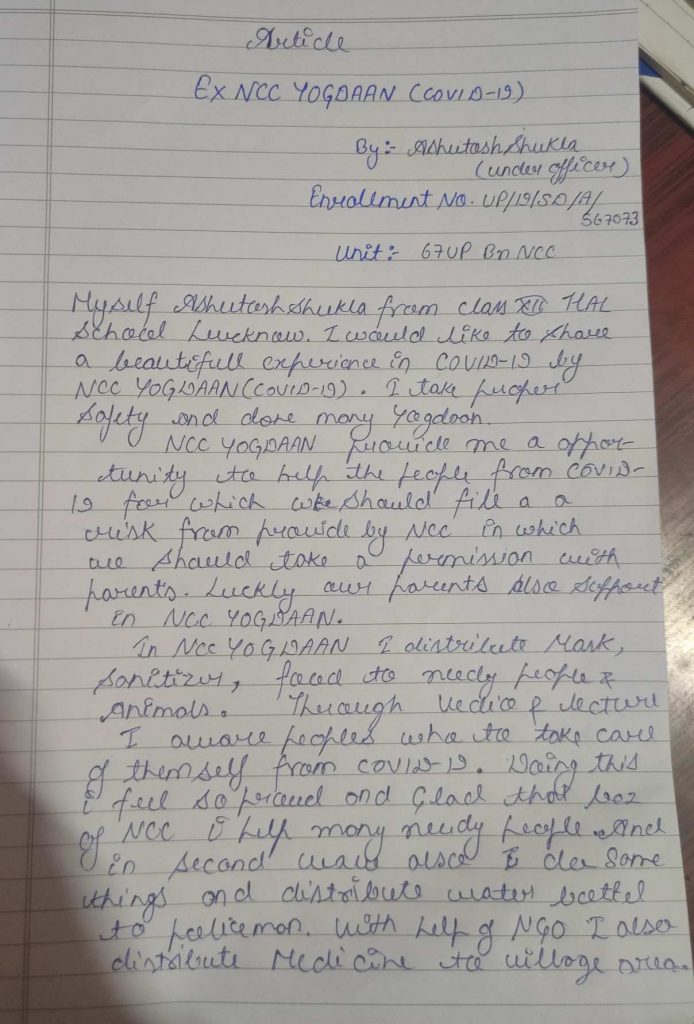 Article
EX NCC YOGDAAN (COVID-19)
By:- Ashutosh Shukla
(under officer)
Enrollment No. UP/19/SD/A/
567073
Unit:- 67 UP Bn NCC
Myself Ashutosh Shukla from class XII HAL
School Lucknow. I would like to share
a beautifull experience in COVID-19 by
NCC YOGDAAN (COVID-19). I take proper
Safety and done many Yogdaan.
NCC YOGDAAN provide me a oppor-
tunity to help the people from COVID-
19 for which we should fill a a
risk from provide by NCC in which
we should take a permission with
parents. Luckly our parents also support
in NCC YOGDAAN.
In NCC YOGDAAN I distribute Mask,
Sanitizer, food to needy people &
Animals. Through Vedio & lecture
I aware peoples who to take care
of themself from COVID-19. Doing this
i feel so proud and Glad that boz
of NCC i help many needy people. And
in second wave also I do some
things and distribute water bottel
to policeman. With help of NGO I also
distribute Medicine to village area.